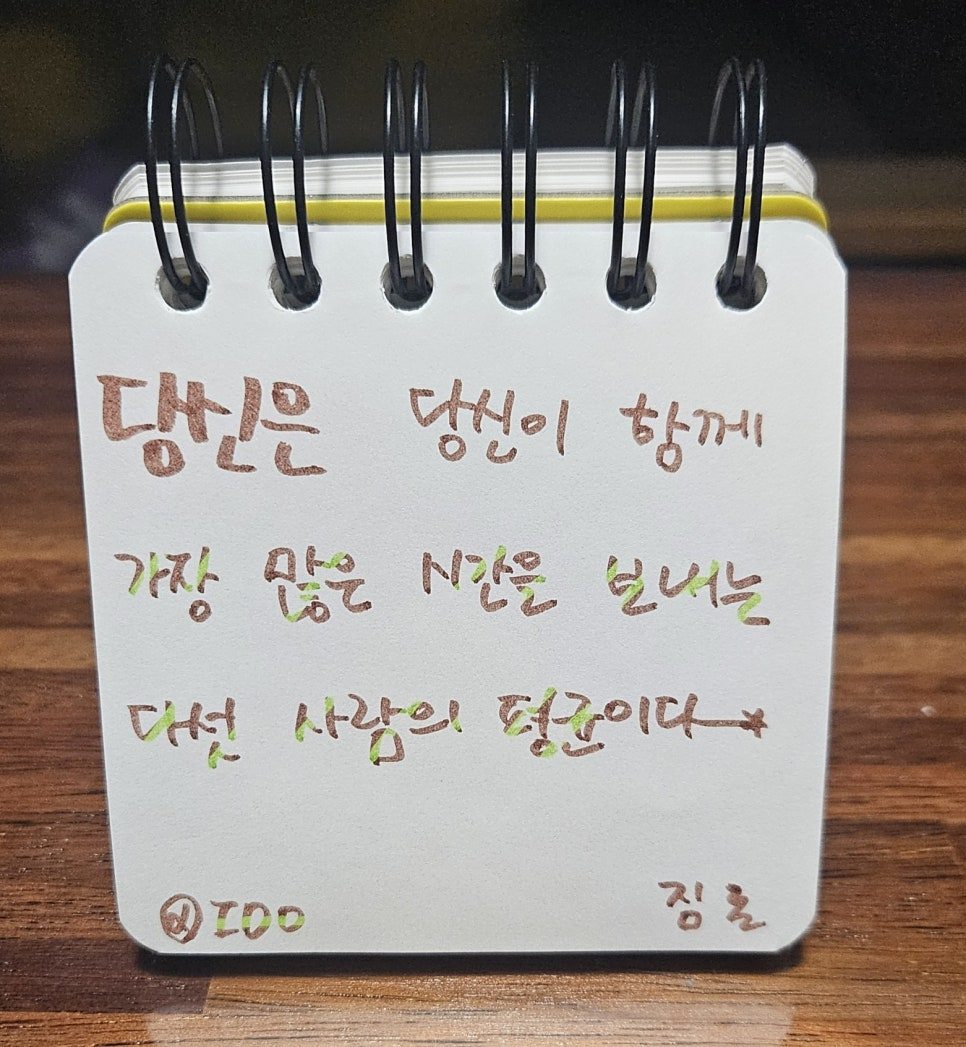 당신은 당신이 함께
가장 많은 시간을 보내는
다섯 사람의 평균이다
@IDO 짐 론